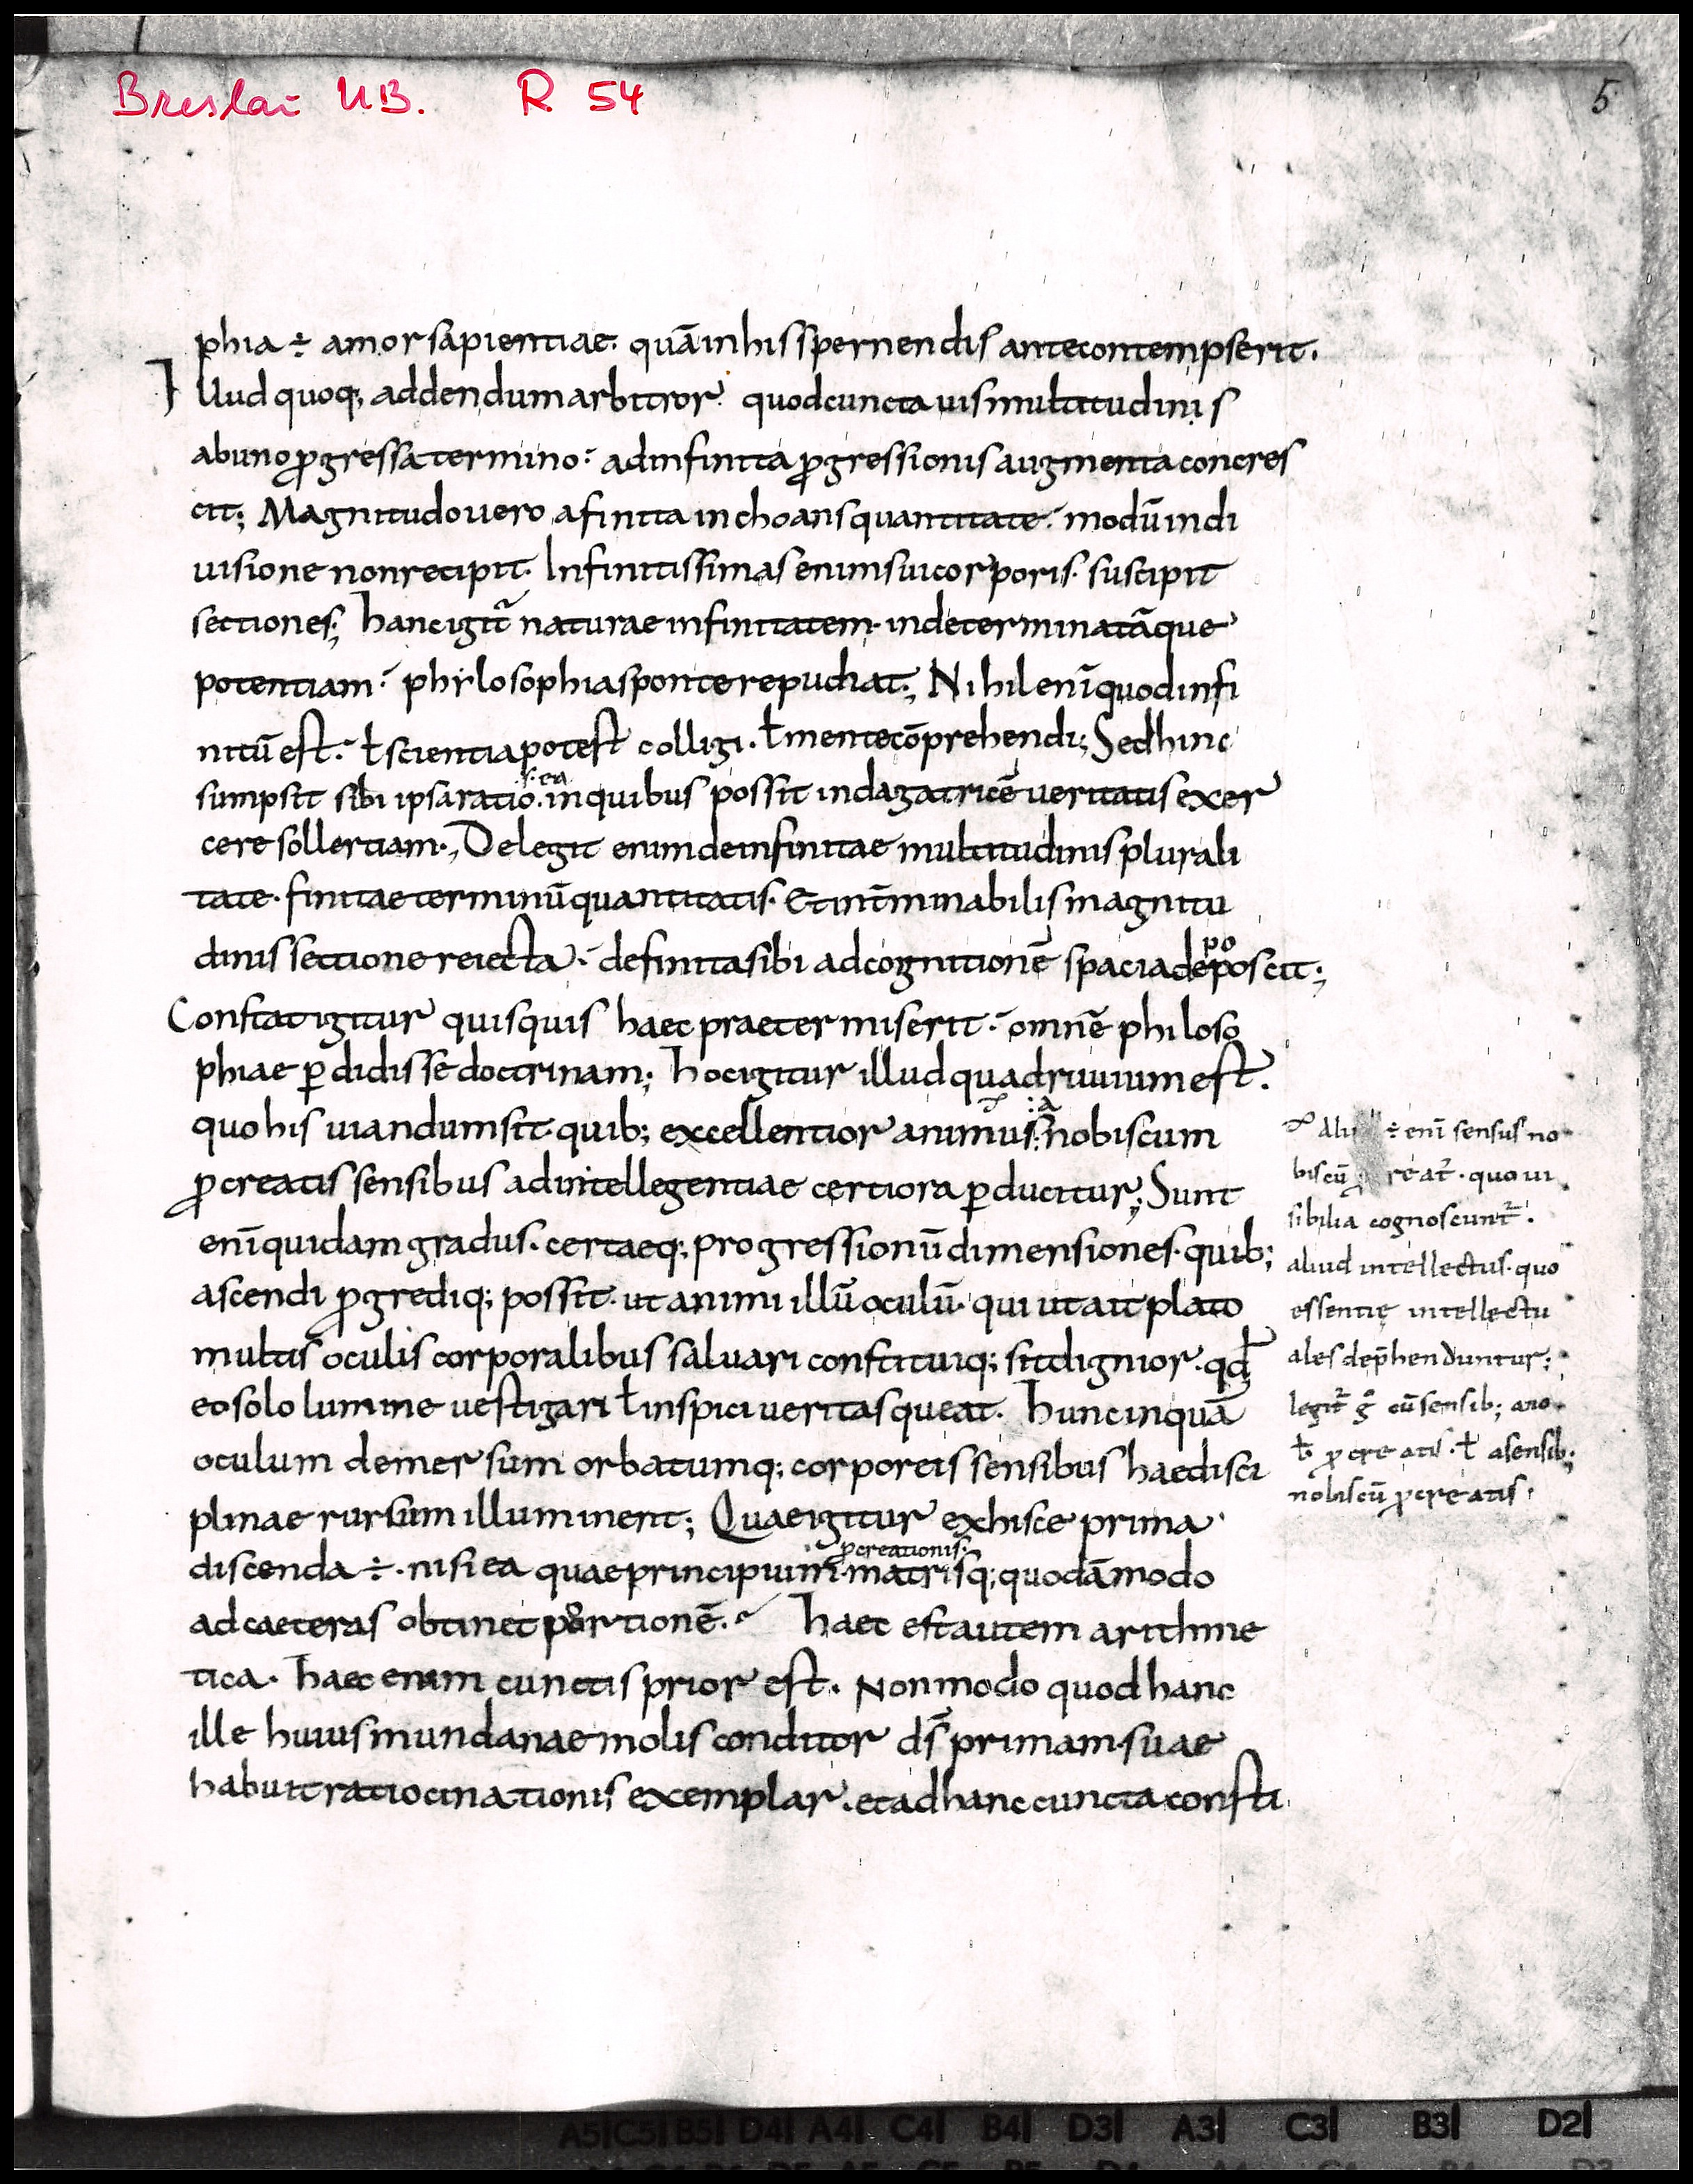 Breslau UB. R 54
5
phia ÷ amor sapientiae. quā in his spernendis ante contempserit.
Illud quoq; addendum arbitror. quod cuncta uis multitudinis
ab uno ꝓgressa termino: ad infinita ꝓgressionis augmenta concres
cit; Magnitudo uero a finita inchoans quantitate: modū in di
uisione non recipit. Infinitissimas enim sui corporis. suscipit
sectiones; hanc igit̃ naturae infinitatem. indeterminatāque
potentiam: phylosophia sponte repudiat; Nihil enī quod infi
nitū est: ł scientia potest colligi. ł mente cōprehendi; Sed hinc
s: ea
sumpsit sibi ipsa ratio. in quibus possit indagatricē ueritatis exer
cere sollertiam; Delegit enim de infinitae multitudinis plurali
tate. finitae terminū quantitatis. Et int̃minabilis magnitu
po
dinis sectione reiecta: definita sibi ad cognitionē spacia deposcit;
Constat igitur quisquis haec praetermiserit: omnē philoso
phiae ꝑdidisse doctrinam; hoc igitur illud quadruuium est.
quo his uiandum sit. quib; excellentior animus: a nobiscum
ꝓcreatis sensibus ad intellegentiae certiora ꝑducitur; Sunt
enī quidam gradus. certaeq; progressionū dimensiones. quib;
ascendi ꝓgrediq; possit. ut animi illū oculū. qui ut ait plato
multis oculis corporalibus saluari constituiq; sit dignior. qđ
eo solo lumine uestigari ł inspici ueritas queat. hunc inquā
oculum demersum orbatumq; corporeis sensibus hae disci
plinae rursum illuminent; Quae igitur ex hisce prima
ꝓcreationis.
discenda ÷. nisi ea quae principium. matrisq; quodāmodo
ad caeteras obtinet portionē. haec est autem arithme
tica. haec enim cunctis prior est. Non modo quod hanc
ille huius mundanae molis conditor d̄s primam suae
habuit ratiocinationis exemplar. et ad hanc cuncta consti
÷ enī sensus no
biscū quo ui
sibilia cognoscunt̃.
aliud intellectus. quo
essentię intellectu
ales dep̄henduntur;
legit̃ g̊ cū sensib; a no
b̵ ꝓcreatis. ł a sensib;
nobiscū ꝓcreatis.
A5 C5 B5 D4 A4 C4 B4 D3 A3 C3 B3 D2